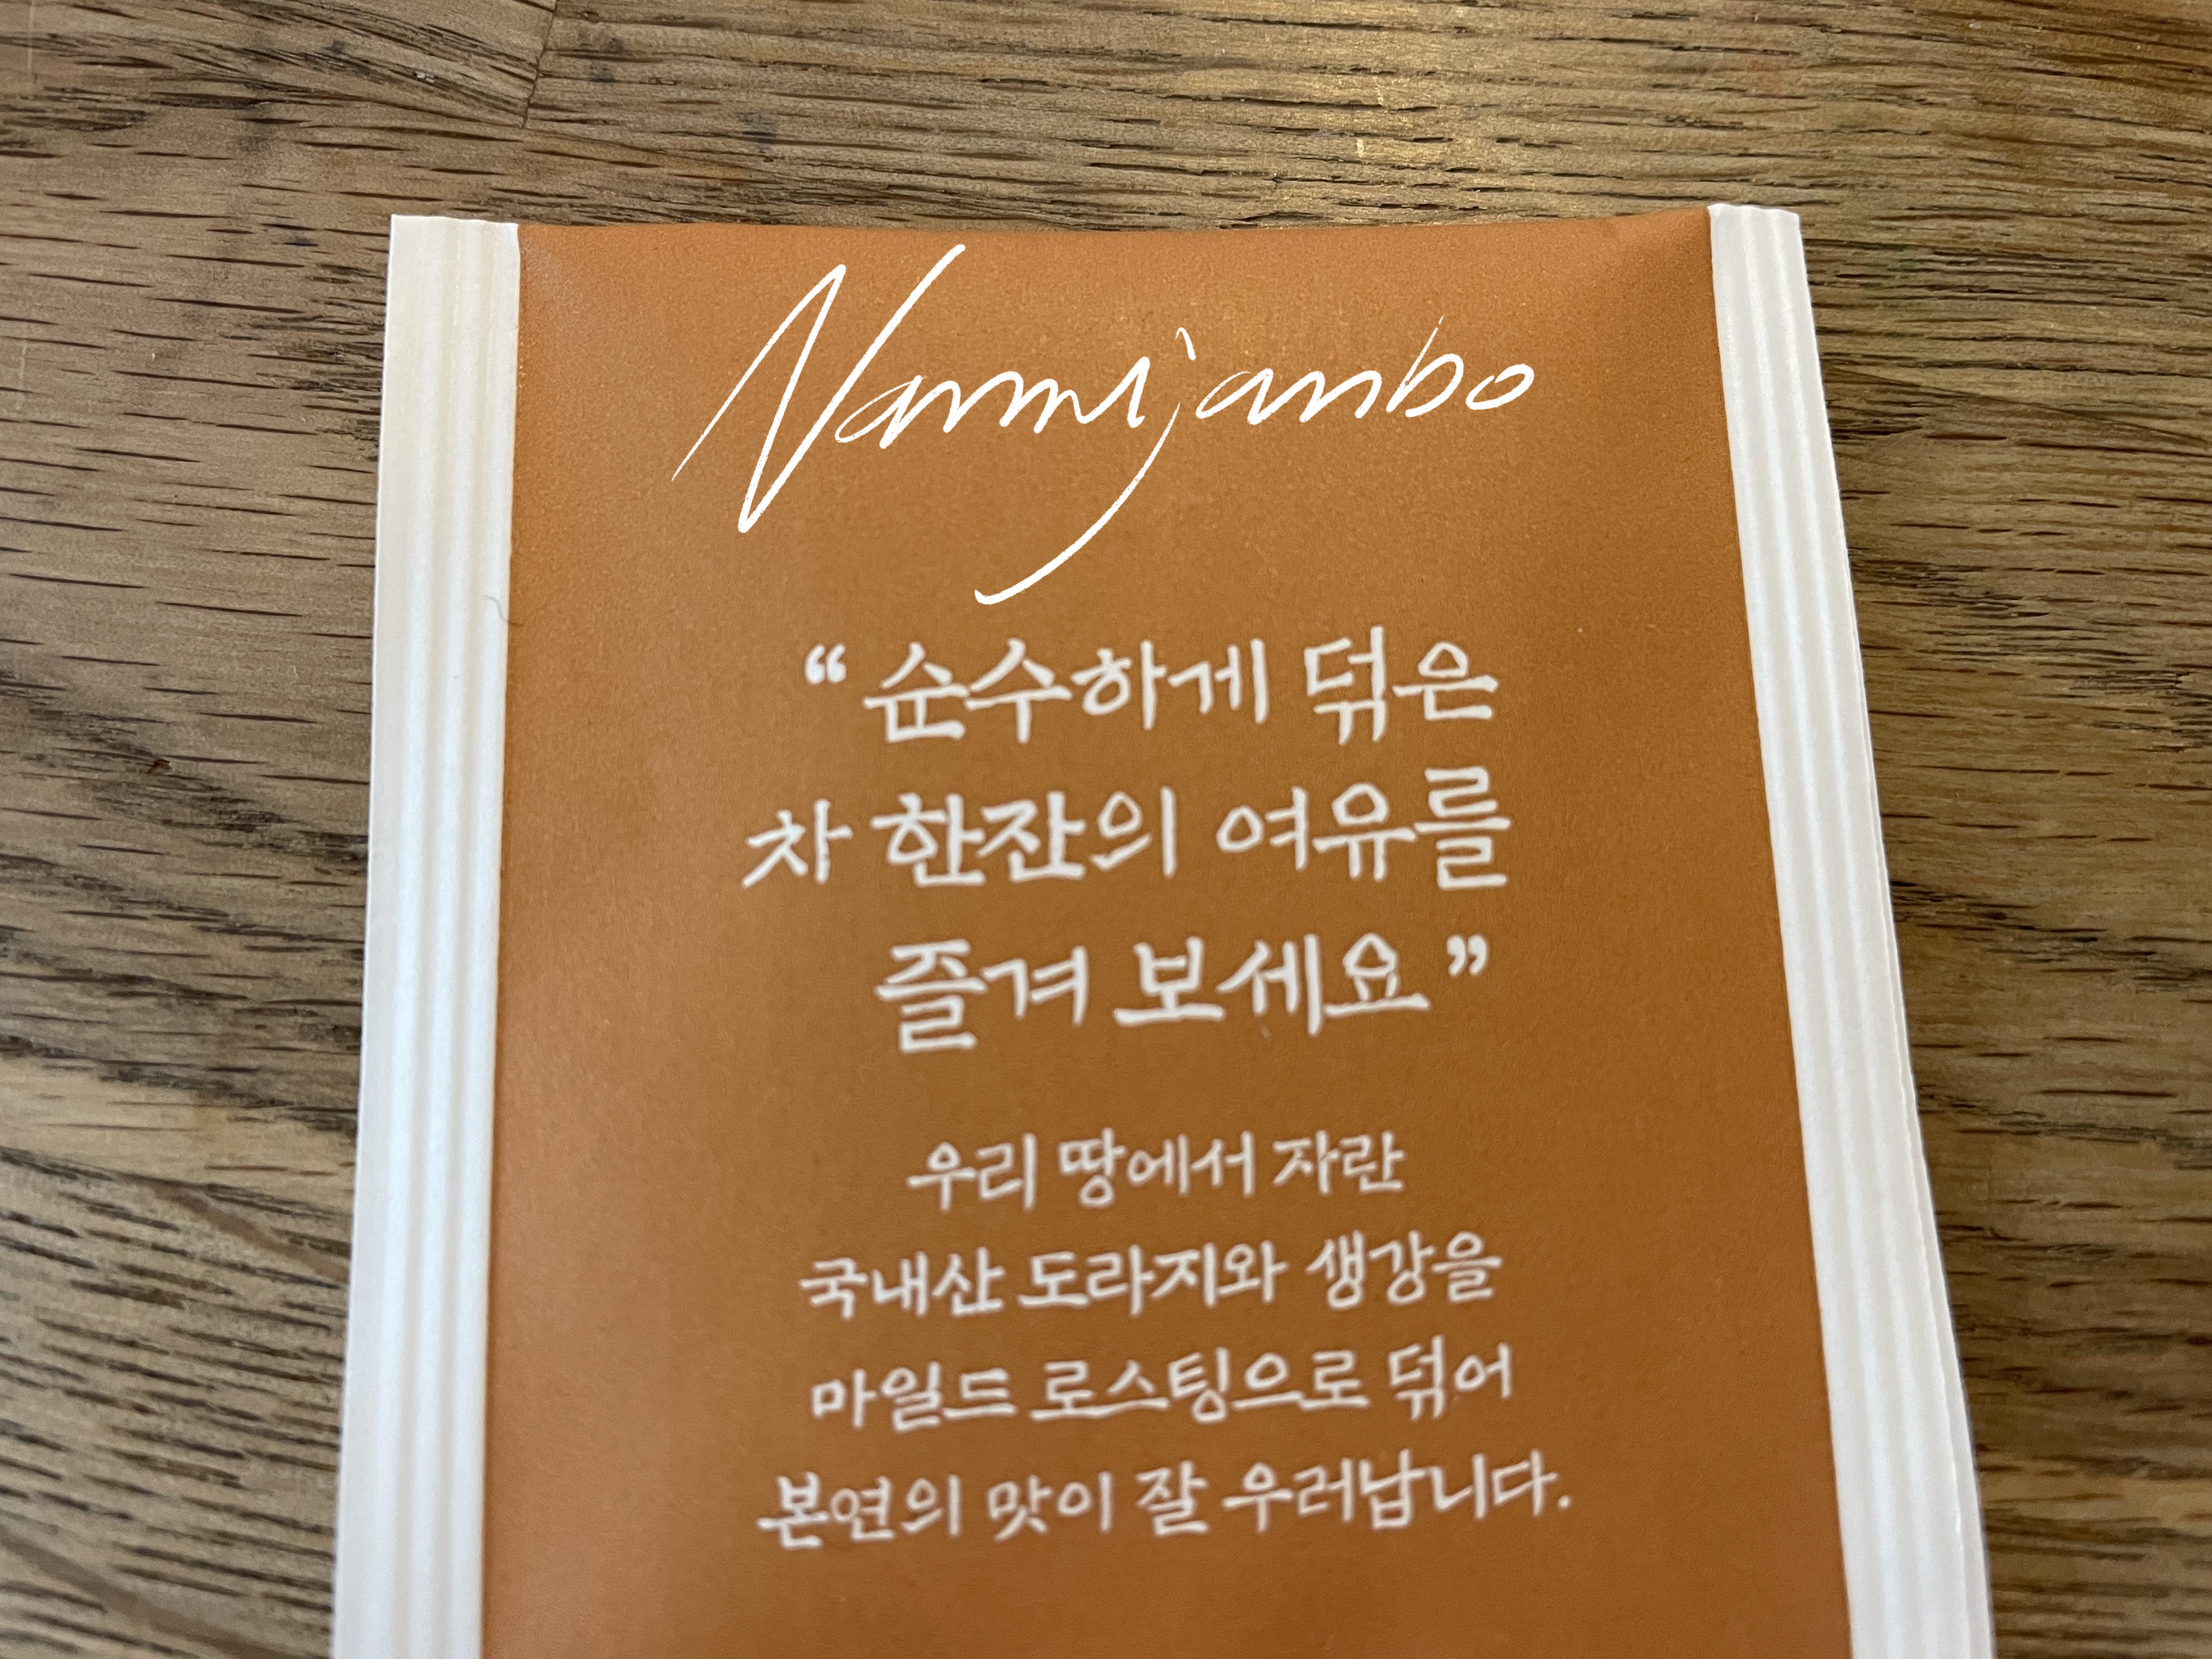 Nammijanbo
“순수하게 덖은
차 한잔의 여유를
즐겨 보세요”
우리 땅에서 자란
국내산 도라지와 생강을
마일드 로스팅으로 덖어
본연의 맛이 잘 우러납니다.